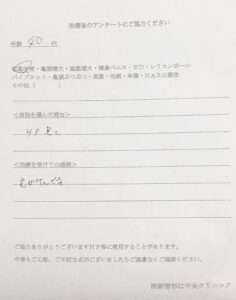 治療後のアンケートにご協力ください
年齢 40 代
包茎治療・亀頭増大・陰茎増大・埋没ペニス・ED・シリコンボール
パイプカット・亀頭ぶつぶつ・長茎・性病・早漏・HARG療法
その他（　　　）
＜当院を選んだ理由＞
HP 見て
＜治療を受けての感想＞
ご協力ありがとうございますHP等に使用することがあります。
今後もご心配、ご不明な点がございましたらご遠慮なくご連絡ください。
西新宿杉江中央クリニック